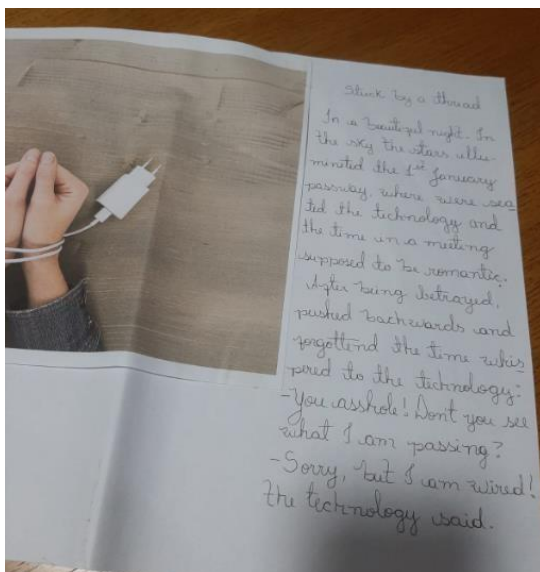 Stuck by a thread
In a beautiful night. In
the sky the stars illu-
minited the 1st January
passway, where were sea
ted the technology and
the time in a meeting
supposed to be romantic.
After being betrayed,
pushed backwards and
forgottend the time whis
pered to the technology:
-You asshole! Don't you see
what I am passing?
-Sorry, but I am wired!
the technology said.